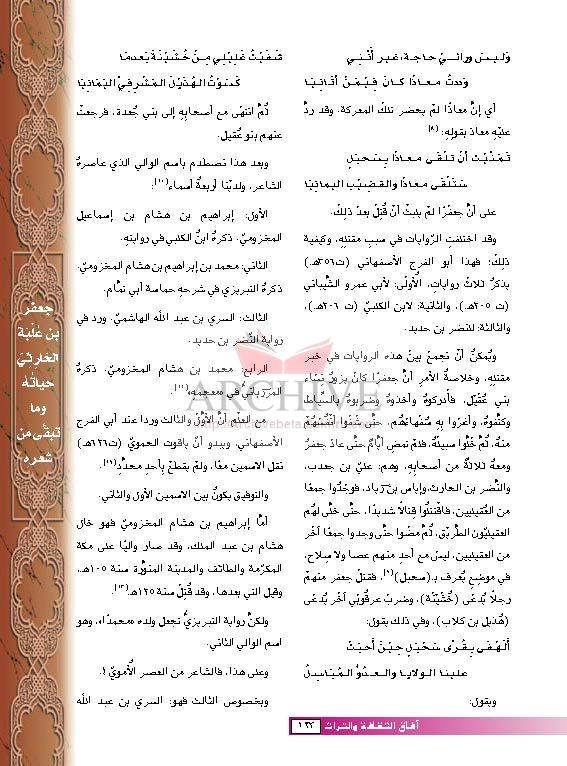 وَلـيـسَ ورائـــيَ حـاجـة، غـيـر أنَّـنـي
وددتُ مـعـاذًا كــانَ فـيـمَـنْ أتـانـيَـا
أي إنَّ معاذًا لمْ يحضر تلك المعركة، وقد ردَّ
عليْهِ معاذ بقولِهِ:
تـمـنَّـيْـتَ أنْ تـلـقَـى مـعـاذًا بِـسَـحْـبَـلٍ
سَـتَـلْـقَـى مـعـاذًا والـقـضـيْـبَ الـيـمـانـيَـا
على أنَّ جعفرًا لمْ يلبثْ أنْ قُتِلَ بعدَ ذلِكَ.
وقد اختلفتِ الرّوايات في سببِ مقتلِهِ، وكيفية
ذلكَ؛ فهذا أبو الفرج الأصفهاني (ت٣٥٦هـ)
يذكرُ ثلاثَ رواياتٍ، الأولَى: لأبي عمرو الشَّيباني
(ت ٢٠٥هـ)، والثانية: لابن الكلبيّ (ت ٢٠٦هـ)،
والثالثة: للنضر بن حديد.
ويُمكنُ أنْ نجمعَ بينَ هذهِ الروايات في خبر
مقتلِهِ، وخلاصةُ الأمرِ أنَّ جعفرًا كانَ يزورُ نساءَ
بني عُقَيْل، فأدركوهُ وأخذوهُ وضربوهُ بالسِّياط
وكتَّفوهُ، وأغرَوا بهِ سُفهاءَهُم، حتَّى شَفَوا أنفُسَهُمْ
منهُ، ثُمَّ خَلَّوا سبيلَهُ، فلمْ تمضِ أيَّامٌ حتَّى عادَ جعفرٌ
ومعهُ ثلاثةٌ من أصحابِهِ، وهم: عليّ بن جعدب،
والنَّضر بن الحارث، وإياس بن زياد، فوجَدُوا جمعًا
من العُقيليين، فاقتتلُوا قتالًا شديدًا، حتَّى خلَّى لهُم
العقيليُّون الطَّريقَ، ثُمَّ مضَوا حتَّى وجدوا جمعًا آخَرَ
من العقيليين، ليسَ مع أحدٍ منهم عصا ولا سِلاح،
في موضعٍ يُعرف بـ(سحبل)، فقتلَ جعفر منهم
رجلًا يُدعَى (خُشَيْنَة)، وضربَ عرقوبَي آخر يُدعَى
(هُذيل بن كلاب)، وفي ذلكَ يقول:
أَلَـهْـفَـى بِـقُـرَّى سَـحْـبَـلٍ حِـيْـنَ أَجْـلَـبَـتْ
عـلـيـنـا الـولايـا والـعـدوُّ الـمُـبَـاسِـلُ
ويقول:
شَـفَـيْـتُ غَـلِـيْـلِـي مِـنْ خُـشَـيْـنَـةَ بَـعـدمـا
كَـسَـوْتُ الـهُـذَيْـلَ الـمَـشْـرفـيَّ الـيَـمَـانِـيَـا
ثُمَّ انتَهَى مع أصحابِهِ إلى بني جُعدة، فرجعتْ
عنهم بنو عُقيل.
وبعد هذا نصطدم باسمِ الوالي الذي عاصرهُ
الشاعر، ولديْنَا أربعةُ أسماء:
الأول: إبراهيم بن هشام بن إسماعيل
المخزوميّ، ذكرهُ ابنُ الكلبي في روايتِهِ.
الثاني: محمد بن إبراهيم بن هشام المخزوميّ،
ذكرهُ التبريزي في شرحِهِ حماسة أبي تمَّام.
الثالث: السري بن عبد الله الهاشميّ، ورد في
رواية النَّضر بن حديد.
الرابع: محمد بن هشام المخزوميّ، ذكرهُ
المرزبانيُّ في «معجمِهِ».
مع العِلْمِ أنَّ الأوَّلَ والثالث وردا عند أبي الفرج
الأصفهاني، ويبدو أنَّ ياقوت الحمويّ (ت٦٢٦هـ)
نقلَ الاسمين معًا، ولمْ يقطعْ بأحدٍ محدَّدٍ.
والتوفيق يكونُ بين الاسمين الأول والثاني.
أمَّا إبراهيم بن هشام المخزوميّ فهو خال
هشام بن عبد الملك، وقد صار واليًا على مكة
المكرَّمة والطائف والمدينة المنوَّرة سنة ١٠٥هـ،
وقيل التي بعدها، وقد قُتلَ سنة ١٢٥هـ.
ولكنَّ رواية التبريزيّ تجعل ولده «محمدًا»، وهو
اسم الوالي الثاني.
وعلى هذا، فالشاعر من العصرِ الأُمويّ.
وبخصوص الثالث فهو: السري بن عبد الله
جعفر
بن عُلْبة
الحَارثيّ
حياتُهُ
وما
تبقَّى من
شعره
ARCHIVE
آفاق الثقافة والتراث